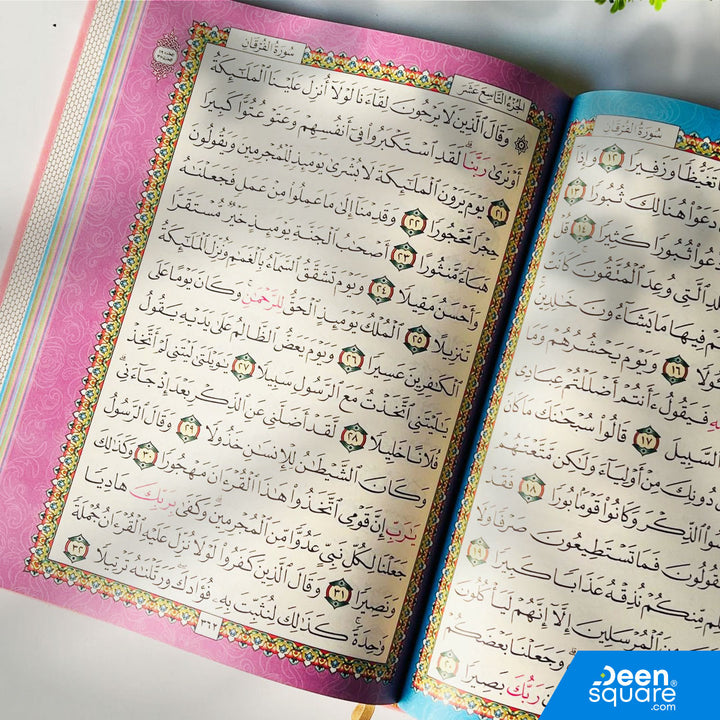 سُورَةُ الفُرْقَان
تَغَيُّظًا وَزَفِيرًا ١٢ وَإِذَا
دَعَوْا۟ هُنَالِكَ ثُبُورًا ١٣
ثُبُورًا كَثِيرًا ١٤ قُلْ
ٱلَّتِى وُعِدَ ٱلْمُتَّقُونَ كَانَتْ
فِيهَا مَا يَشَآءُونَ خَـٰلِدِينَ
١٦ وَيَوْمَ يَحْشُرُهُمْ وَمَا
فَيَقُولُ ءَأَنتُمْ أَضْلَلْتُمْ عِبَادِى
ٱلسَّبِيلَ ١٧ قَالُوا۟ سُبْحَـٰنَكَ مَا كَانَ
دُونِكَ مِنْ أَوْلِيَآءَ وَلَـٰكِن مَّتَّعْتَهُمْ
ٱلذِّكْرَ وَكَانُوا۟ قَوْمًۢا بُورًا ١٨ فَقَدْ
فَمَا تَسْتَطِيعُونَ صَرْفًا وَلَا
مِّنكُمْ نُذِقْهُ عَذَابًا كَبِيرًا ١٩
ٱلْمُرْسَلِينَ إِلَّآ إِنَّهُمْ لَيَأْكُلُونَ
وَجَعَلْنَا بَعْضَكُمْ
رَبُّكَ بَصِيرًا ٢٠
الجُزْءُ التَّاسِعَ عَشَرَ
سُورَةُ الفُرْقَان
۞ وَقَالَ ٱلَّذِينَ لَا يَرْجُونَ لِقَآءَنَا لَوْلَآ أُنزِلَ عَلَيْنَا ٱلْمَلَـٰٓئِكَةُ
أَوْ نَرَىٰ رَبَّنَا ۗ لَقَدِ ٱسْتَكْبَرُوا۟ فِىٓ أَنفُسِهِمْ وَعَتَوْ عُتُوًّا كَبِيرًا
٢١ يَوْمَ يَرَوْنَ ٱلْمَلَـٰٓئِكَةَ لَا بُشْرَىٰ يَوْمَئِذٍ لِّلْمُجْرِمِينَ وَيَقُولُونَ
حِجْرًا مَّحْجُورًا ٢٢ وَقَدِمْنَآ إِلَىٰ مَا عَمِلُوا۟ مِنْ عَمَلٍ فَجَعَلْنَـٰهُ
هَبَآءً مَّنثُورًا ٢٣ أَصْحَـٰبُ ٱلْجَنَّةِ يَوْمَئِذٍ خَيْرٌ مُّسْتَقَرًّا
وَأَحْسَنُ مَقِيلًا ٢٤ وَيَوْمَ تَشَقَّقُ ٱلسَّمَآءُ بِٱلْغَمَـٰمِ وَنُزِّلَ ٱلْمَلَـٰٓئِكَةُ
تَنزِيلًا ٢٥ ٱلْمُلْكُ يَوْمَئِذٍ ٱلْحَقُّ لِلرَّحْمَـٰنِ ۚ وَكَانَ يَوْمًا عَلَى
ٱلْكَـٰفِرِينَ عَسِيرًا ٢٦ وَيَوْمَ يَعَضُّ ٱلظَّالِمُ عَلَىٰ يَدَيْهِ يَقُولُ
يَـٰلَيْتَنِى ٱتَّخَذْتُ مَعَ ٱلرَّسُولِ سَبِيلًا ٢٧ يَـٰوَيْلَتَىٰ لَيْتَنِى لَمْ أَتَّخِذْ
فُلَانًا خَلِيلًا ٢٨ لَّقَدْ أَضَلَّنِى عَنِ ٱلذِّكْرِ بَعْدَ إِذْ جَآءَنِى ۗ
وَكَانَ ٱلشَّيْطَـٰنُ لِلْإِنسَـٰنِ خَذُولًا ٢٩ وَقَالَ ٱلرَّسُولُ
يَـٰرَبِّ إِنَّ قَوْمِى ٱتَّخَذُوا۟ هَـٰذَا ٱلْقُرْءَانَ مَهْجُورًا ٣٠ وَكَذَٰلِكَ
جَعَلْنَا لِكُلِّ نَبِىٍّ عَدُوًّا مِّنَ ٱلْمُجْرِمِينَ ۗ وَكَفَىٰ بِرَبِّكَ هَادِيًا
وَنَصِيرًا ٣١ وَقَالَ ٱلَّذِينَ كَفَرُوا۟ لَوْلَا نُزِّلَ عَلَيْهِ ٱلْقُرْءَانُ جُمْلَةً
وَٰحِدَةً ۚ كَذَٰلِكَ لِنُثَبِّتَ بِهِۦ فُؤَادَكَ ۖ وَرَتَّلْنَـٰهُ تَرْتِيلًا ٣٢
٣٦٢
Deen
square®
.com